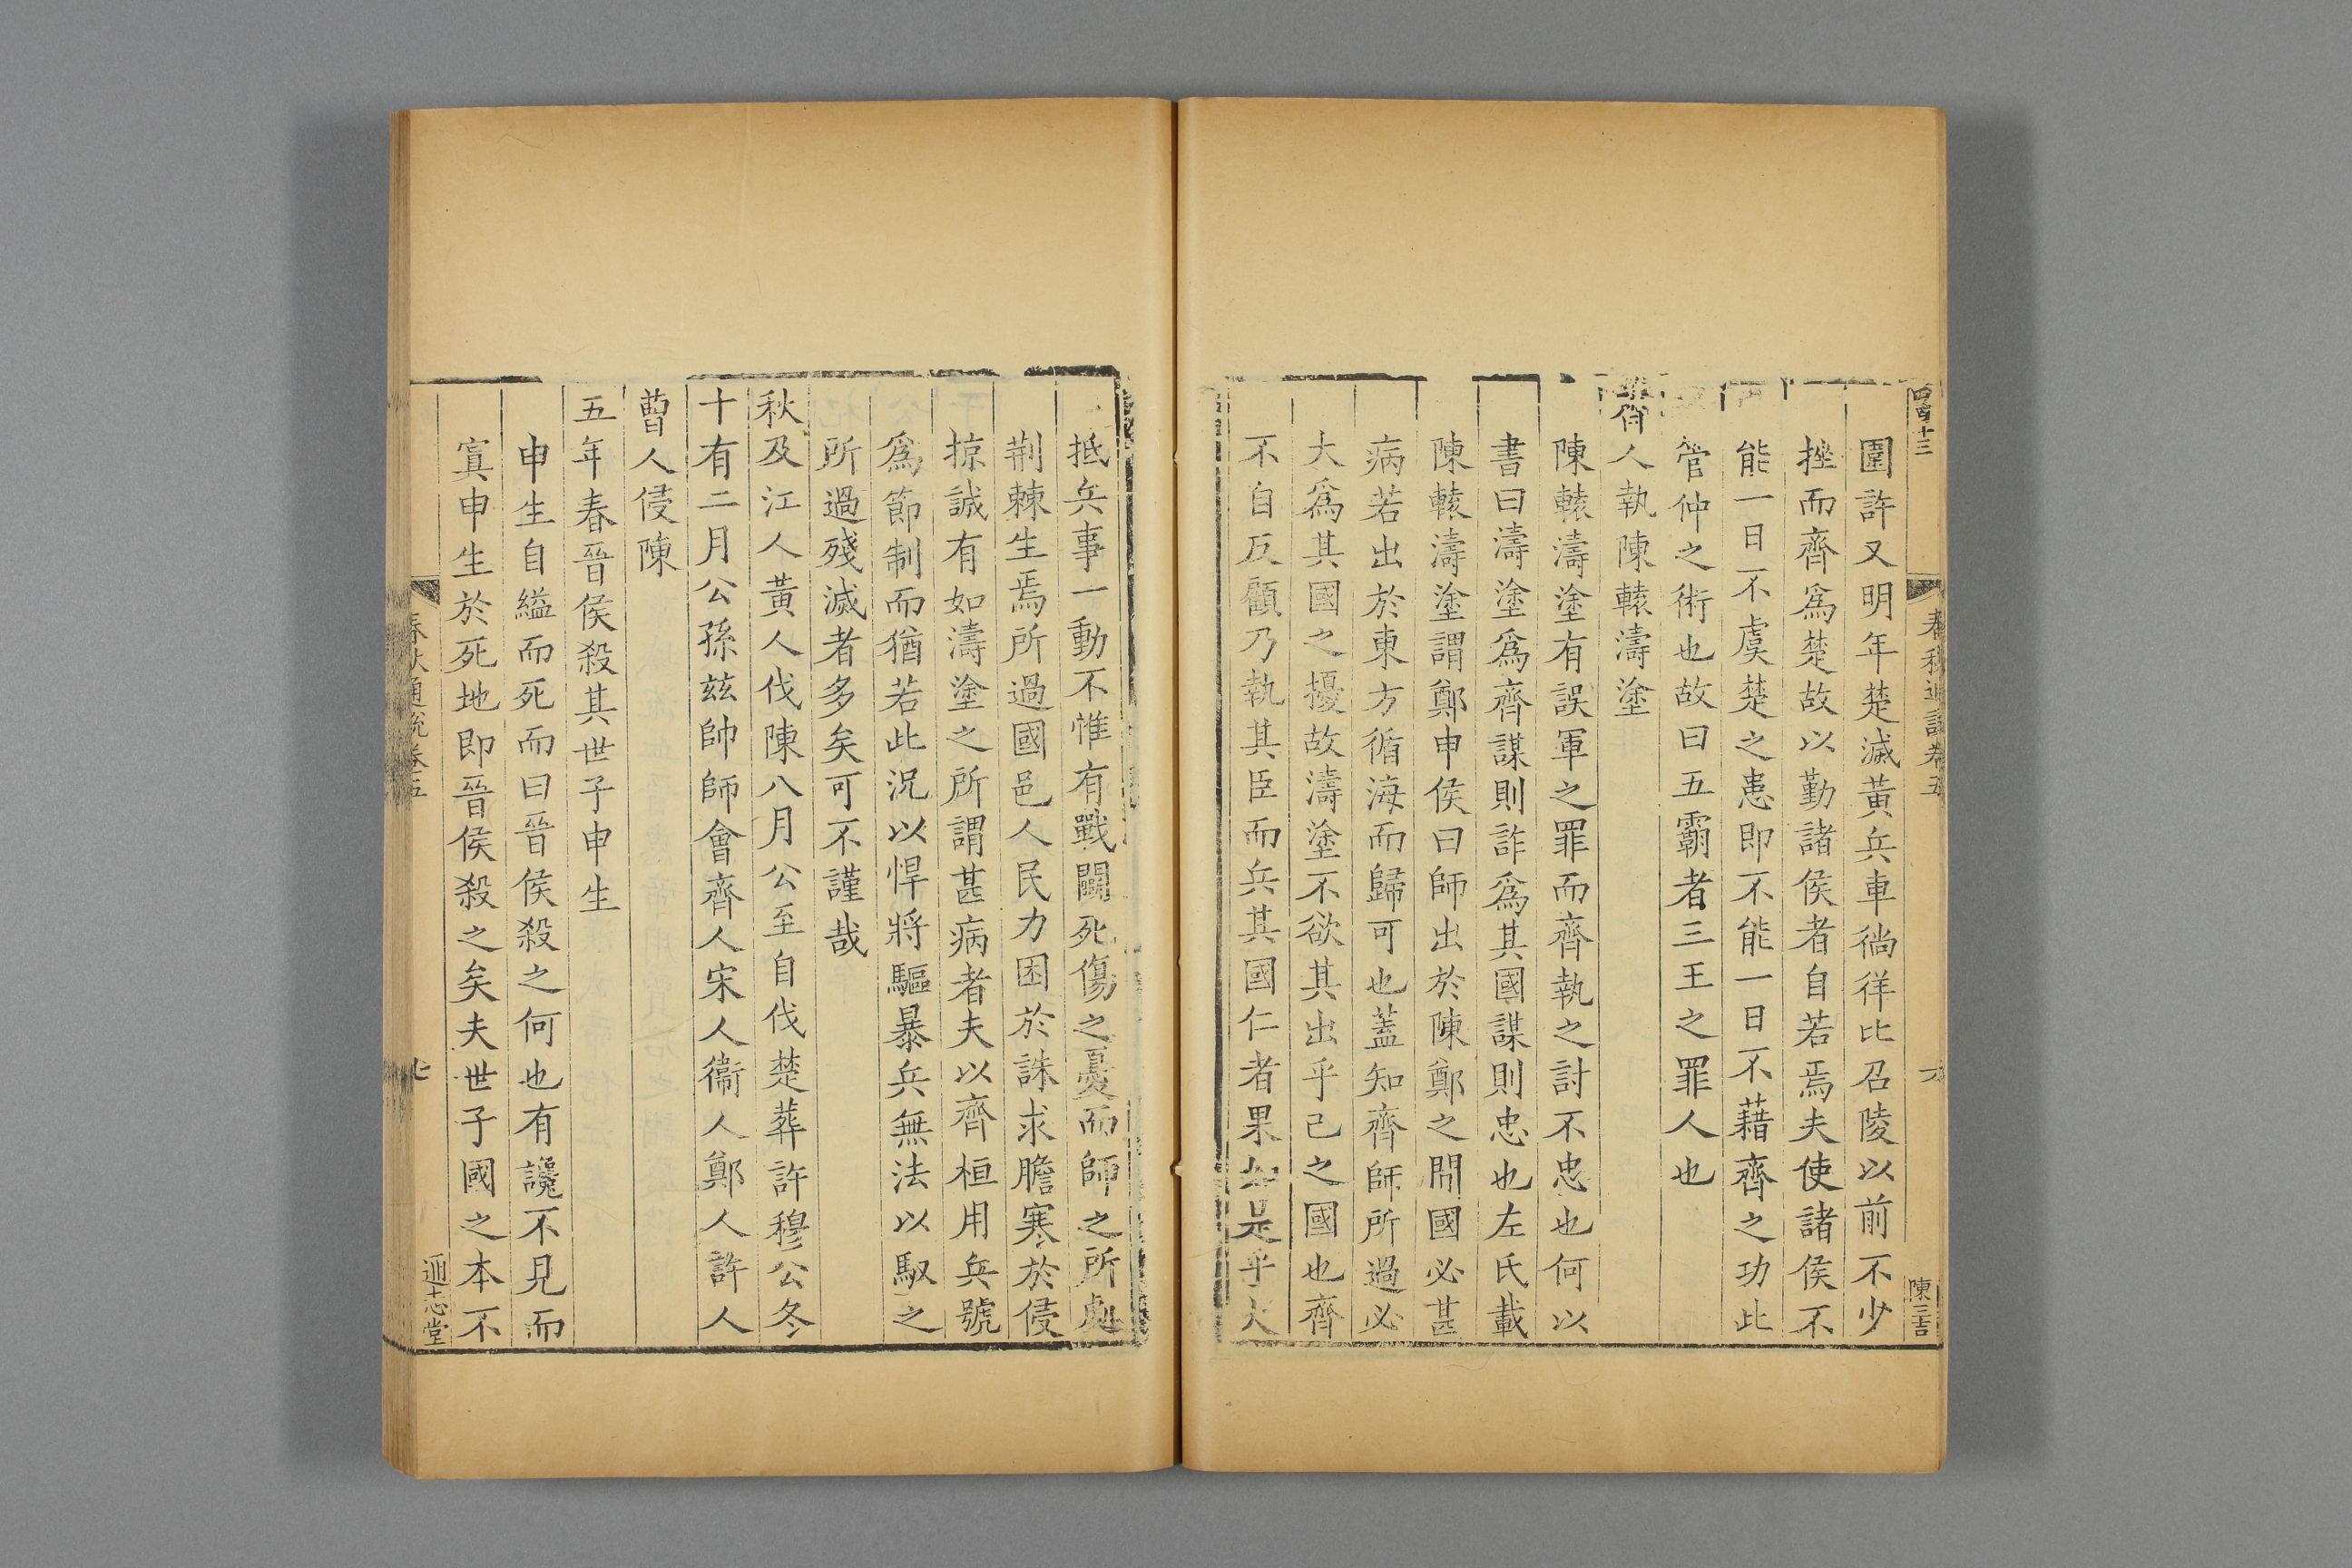 四百十三
春秋通說卷五
六
陳三吉
圍許又明年楚滅黃兵車徜徉比召陵以前不少
挫而齊爲楚故以勤諸侯者自若焉夫使諸侯不
能一日不虞楚之患即不能一日不藉齊之功此
管仲之術也故曰五霸者三王之罪人也
人執陳轅濤塗
陳轅濤塗有誤軍之罪而齊執之討不忠也何以
書曰濤塗爲齊謀則詐爲其國謀則忠也左氏載
陳轅濤塗謂鄭申侯曰師出於陳鄭之間國必甚
病若出於東方循海而歸可也蓋知齊師所過必
大爲其國之擾故濤塗不欲其出乎己之國也齊
不自反顧乃執其臣而兵其國仁者果如是乎大
抵兵事一動不惟有戰鬭死傷之憂而師之所處
荆棘生焉所過國邑人民力困於誅求膽寒於侵
掠誠有如濤塗之所謂甚病者夫以齊桓用兵號
爲節制而猶若此況以悍將驅暴兵無法以馭之
所過殘滅者多矣可不謹哉
秋及江人黃人伐陳八月公至自伐楚葬許穆公冬
十有二月公孫兹帥師會齊人宋人衞人鄭人許人
曹人侵陳
五年春晉侯殺其世子申生
申生自縊而死而曰晉侯殺之何也有讒不見而
寘申生於死地即晉侯殺之矣夫世子國之本不
春秋通說卷五
七
通志堂